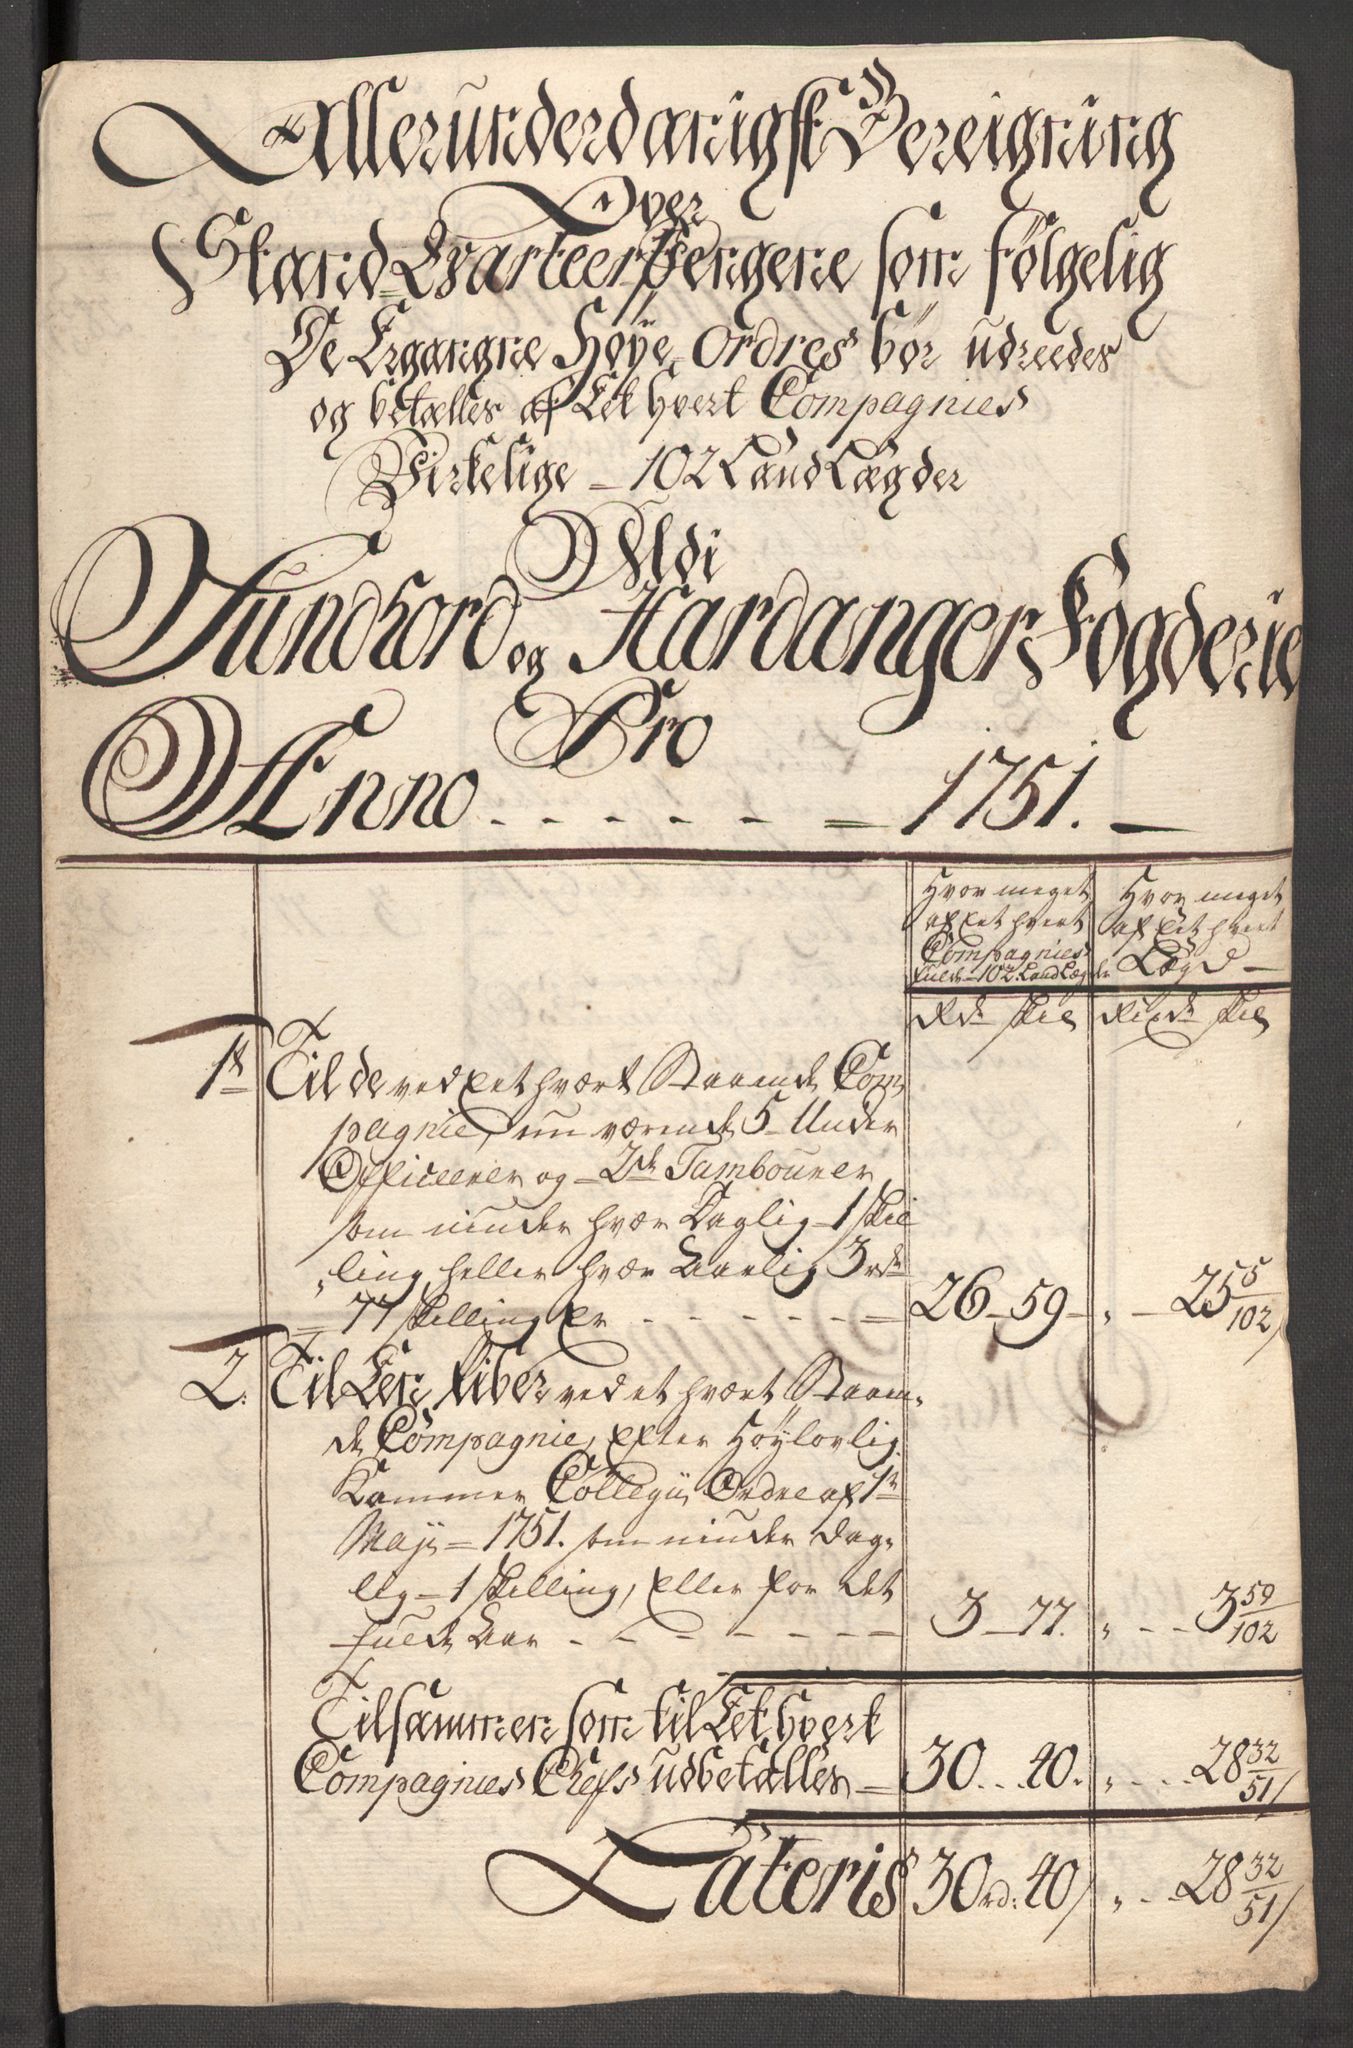 Allerunderdanigst Bereigning
Over
Stand Qvarteer Pengene som følgelig
De Ergangne Høye Ordres bør udreedes
og betalles af Eet hvert Compagnies
Virkelige = 102 Land Lægder
Udi
Sundhord og Hardanger Fogderie
Pro
Anno - - - - - = 1751. —
Hvor meget
af Eet hvert
Compagnies
fulde 102 Land Lægder
Hvor meget
af Eet hvert
Lægd —
Rdr skil
Rixdr skil
1st Til de ved Eet hvært Staaende Com
pagnie, nu værende 5 Under
Officerer og = 2de Tambourer
som niuder hvær Daglig 1 skil
ling, heller hvær Aarlig 3 rdr
= 77 skelling er - - - - - = 26 - 59 - „ - 25 5/102
2. Til Een Piber ved et hvært Staaen-
de Compagnie, efter Høylovlig
Kammer Collegii Ordre af 1te
Maji = 1751. som niuder Dag-
lig - 1 skelling, Eller for det
fulde Aar - - - - - - - 3 - 77. „ - - 3 59/102
Tilsammen som til Eet hvert
Compagnies Chefs udbetalles = 30 . . 40. „ - - - 28 32/51
Lateris 30 rd: 40/ „ - - 28 32/51